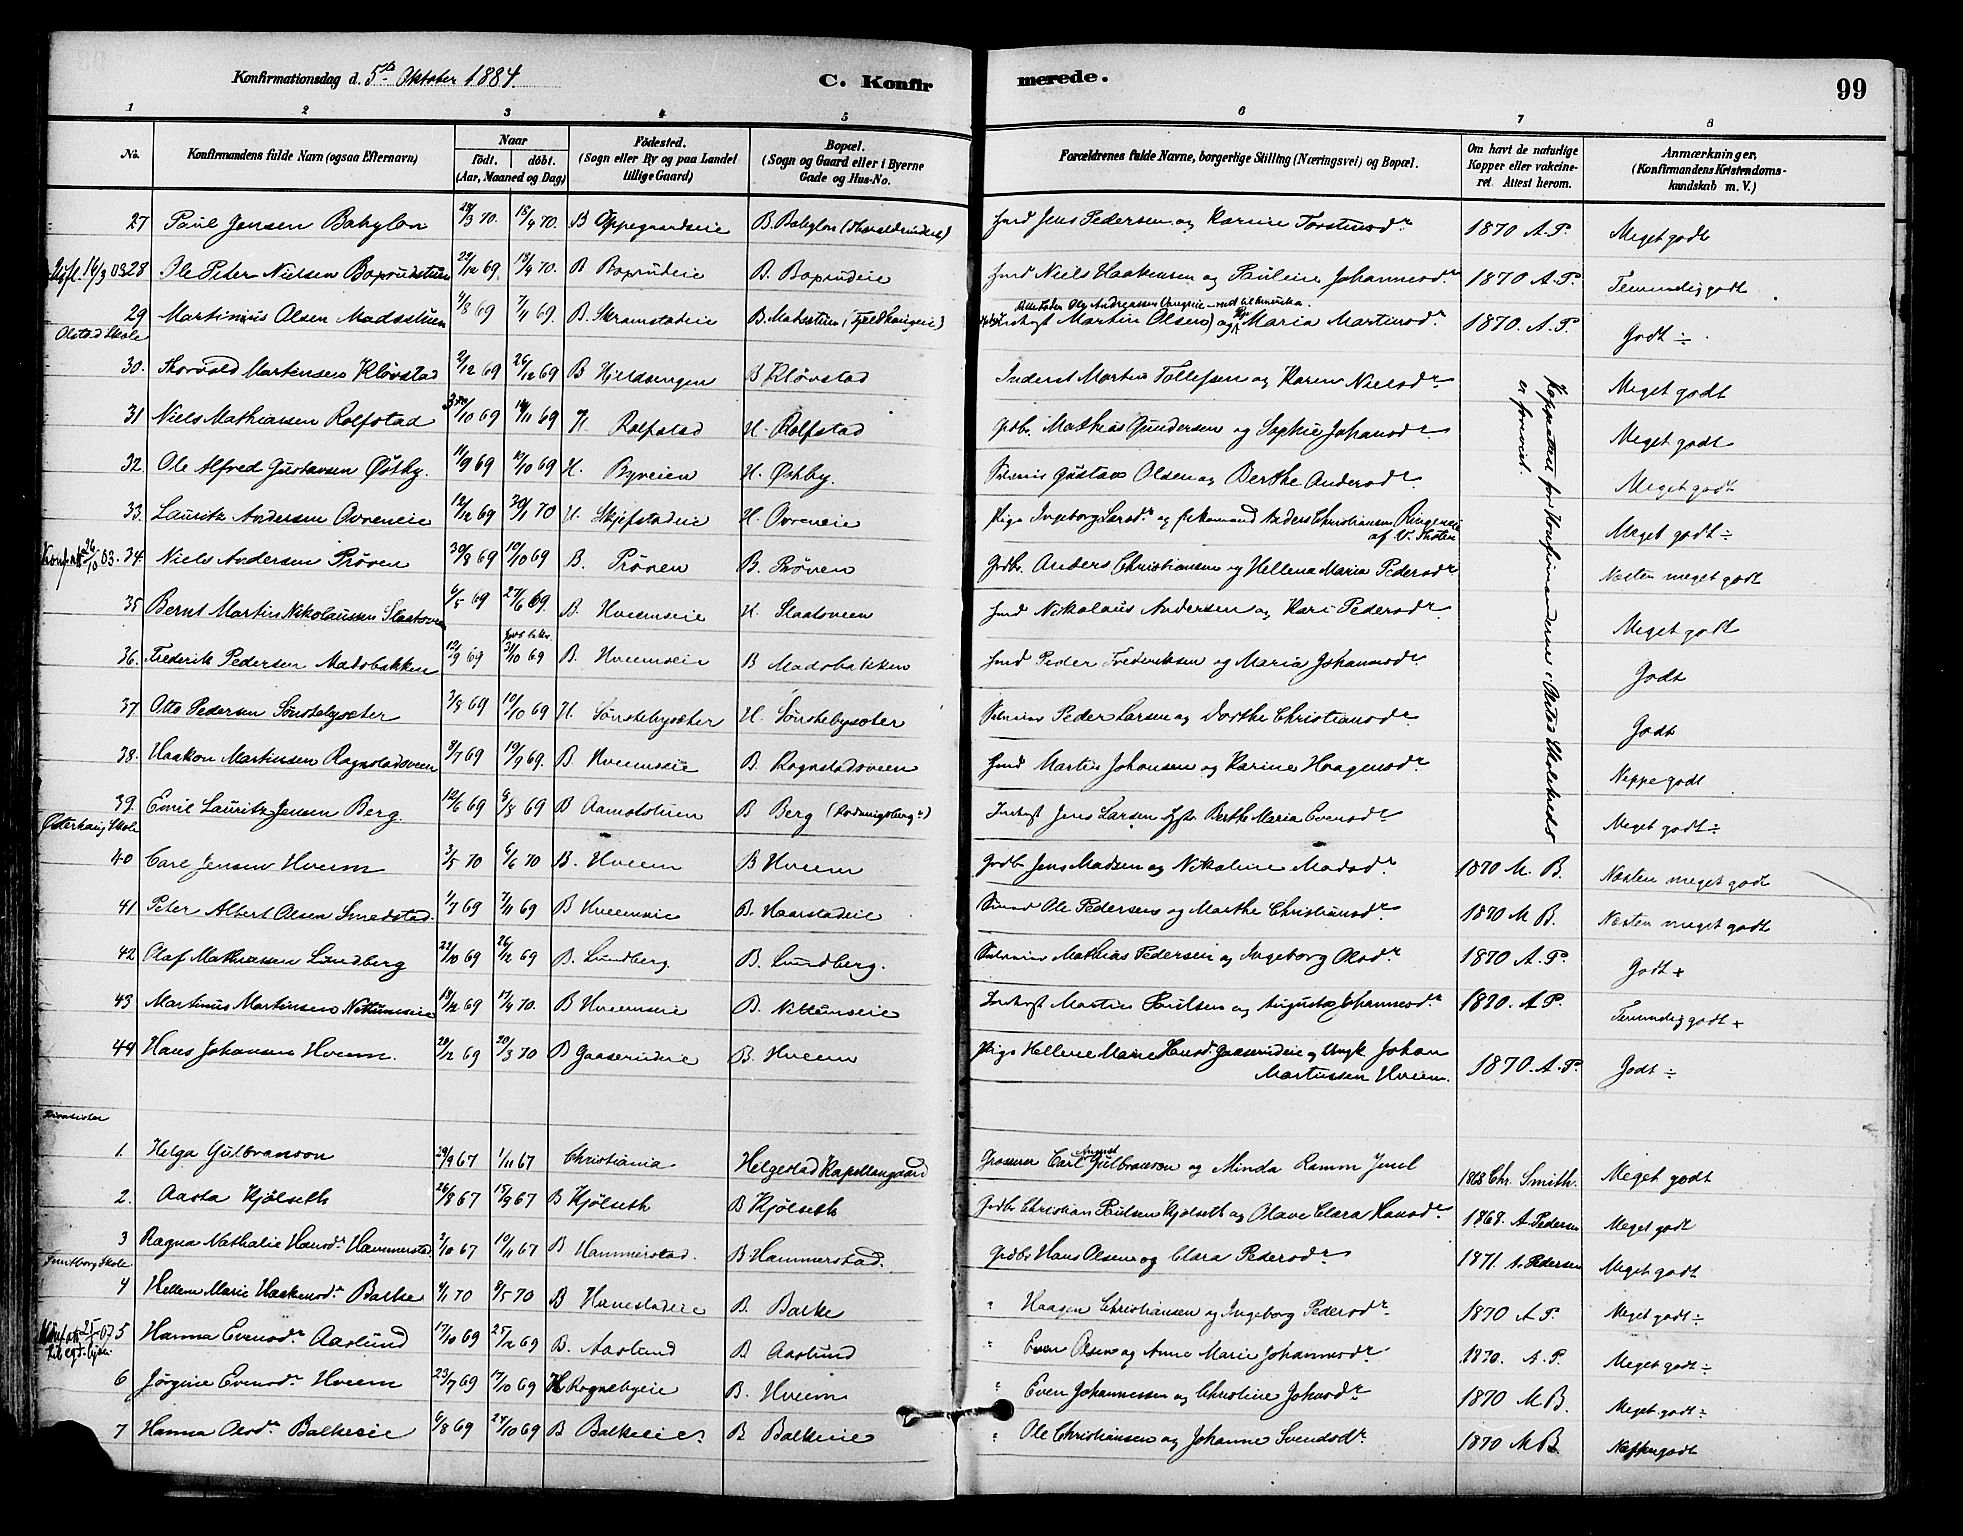 Konfirmationsdag d. 5te Oktober 1884.
C. Konfirmerede.
99
1 2 3 4 5 6 7 8
No. Konfirmandens fulde Navn (ogsaa Efternavn) Naar födt. döbt. (Aar, Maaned og Dag) Födested. (Sogn eller By og paa Landet tillige Gaard) Bopæl. (Sogn og Gaard eller i Byerne Gade og Hus-No. Forældrenes fulde Navne, borgerlige Stilling (Næringsvei) og Bopæl. Om havt de naturlige Kopper eller vakcineret. Attest herom. Anmærkninger. (Konfirmandens Kristendomskundskab m. V.)
27 Paul Jensen Babylon 28/3 70. 18/4 70. B Oppegaardseie B. Babylon Jens Pedersen og Karine Torstensdr 1870 A.P. Meget godt
16/3 03 28 Ole Peter Nielsen Boprudstuen 29/12 69. 18/4 70. B Boprudeie B. Boprudeie Niels Haakensen og Pauline Johannesdr 1870 A.P. Temmelig godt
29 Martinius Olsen Madsstuen 4/8 69 7/11 69. B. Skramstadeie B. Madsstuen Martin Olsen og Maria Martinsdr 1870. A.P. Godt ÷
Olstad Skole
30. Thorvald Martinsen Kløvstad 2/12 69 26/12 69 B Hjeldsengen B Kløvstad Inderst Martin Tollefsen og Karen Nielsdr Meget godt
Koppattest for Konfirmanderne i Aastes Skolekreds er forevist.
31 Niels Mathiassen Rolfstad 30/10 69 14/11 69 H. Rolfstad H. Rolfstad Gdbr. Mathias Gundersen og Sophie Johansdr Meget godt
32. Ole Alfred Gustavsen Østby. 11/9 69 10/10 69 H. Byveien H. Østby. Gustav Olsen og Berthe Andersdr Meget godt
33. Lauritz Andersen Ovreneie 18/12 69 30/1 70 H. Skjefstadeie H. Ovreneie Pige Ingeborg Larsdr og Anders Christiansen Ringeneie af V. Thoten Meget godt ÷
Konf.att. 26/10 03. 34. Niels Andersen Prøven 30/8 69 10/10 69 B. Prøven B. Prøven Gdbr. Anders Christiansen og Hellena Maria Pedersdr Næsten meget godt
35 Bernt Martin Nikolaussen Slaatsveen 6/5 69 27/6 69. B. Hveemseie H. Slaatsveen Nikolaus Andersen og Kari Pedersdr Meget godt
36. Frederik Pedersen Madsbakken 12/9 69 31/10 69 B. Hveemseie B Madsbakken Peder Frederiksen og Maria Johannesdr Godt
37 Otto Pedersen Sönstebysæter 3/8 69 10/10 69 H. Sönstebysæter H. Sönstebysæter Peder Larsen og Dorthe Christiansdr Godt
38. Haakon Martinsen Rognstadsveen 8/7 69 19/9 69. B Hveemseie B. Rognstadsveen Martin Johansen og Karine Haagensdr Neppe godt
39. Emil Lauritz Jensen Berg. 12/6 69 8/8 69 B Aamotstuen B Berg Jens Larsen Berthe Maria Evensdr Meget godt ÷
Østerhaug Skole
40 Carl Jensen Hveem 3/5 70 6/6 70 B. Hveem B Hveem Gdbr Jens Madsen og Nikoline Madsdr 1870 M. B. Næsten meget godt
41 Peter Albert Olsen Smedstad. 1/7 69 7/11 69 B Hveemseie B. Haarstadeie Ole Pedersen og Marthe Christiansdr 1870 M B. Næsten meget godt
42 Olaf Mathiassen Lundberg 22/10 69 26/12 69 B. Lundberg. B. Lundberg. Mathias Pedersen og Ingeborg Olsdr 1870 A.P. Godt +
43 Martinus Martinsen Nettumseie 18/12 69 17/4 70. B Hveemseie B. Nettumseie Martin Paulsen og Augusta Johannesdr 1870. A P. Temmelig godt +
44 Hans Johansen Hveem. 28/12 69 20/3 70 B Gaaserudeie B. Hveem Pige Hellene Marie Hansdr Gaaserudeie og Ungk Johan Martinsen Hveem. 1870. A.P. Godt ÷
1. Helga Gulbranson 29/9 67 1/11 67 Christiania Helgestad Kapellangaard Grosserer Carl August Gulbranson og Minda Ramm Juel 1868 Chr. Smith. Meget godt
2. Aasta Kjølseth 26/8 67 15/9 67 B Kjølseth B Kjølseth Gdbr Christian Paulsen Kjølseth og Olave Clara Hansdr 1868. A. Pedersen Meget godt
3 Ragna Nathalie Hansdr Hammerstad. 2/10 67 10/11 67 B Hammerstad. B. Hammerstad. Gdbr Hans Olsen og Clara Pedersdr 1871. A. Pedersen Meget godt
Frintborg Skole
4 Hellene Marie Haakensdr Barke 4/1 70 8/5 70 B B. Barke " Haagen Christiansen og Ingeborg Pedersdr 1870 A.P. Meget godt ÷
Konf.att. 25/1 07 5 Hanna Evensdr Aaslund 17/10 69 25/12 69 B. Aaslund B Aaslund " Even Olsen og Anne Marie Johannesdr 1870. A.P. Meget godt ÷
6 Jørgine Evensdr Hveem 23/7 69 17/10 69 H Rognebyeie B. Hveem " Even Johannessen og Christine Johnsdr 1870 M B. Meget godt ÷
7 Hanna Olsdr Balkeseie 6/8 69 24/10 69 B Balkeeie B Balkeeie " Ole Christiansen og Johanne Svendsdr 1870 M B Neppe godt